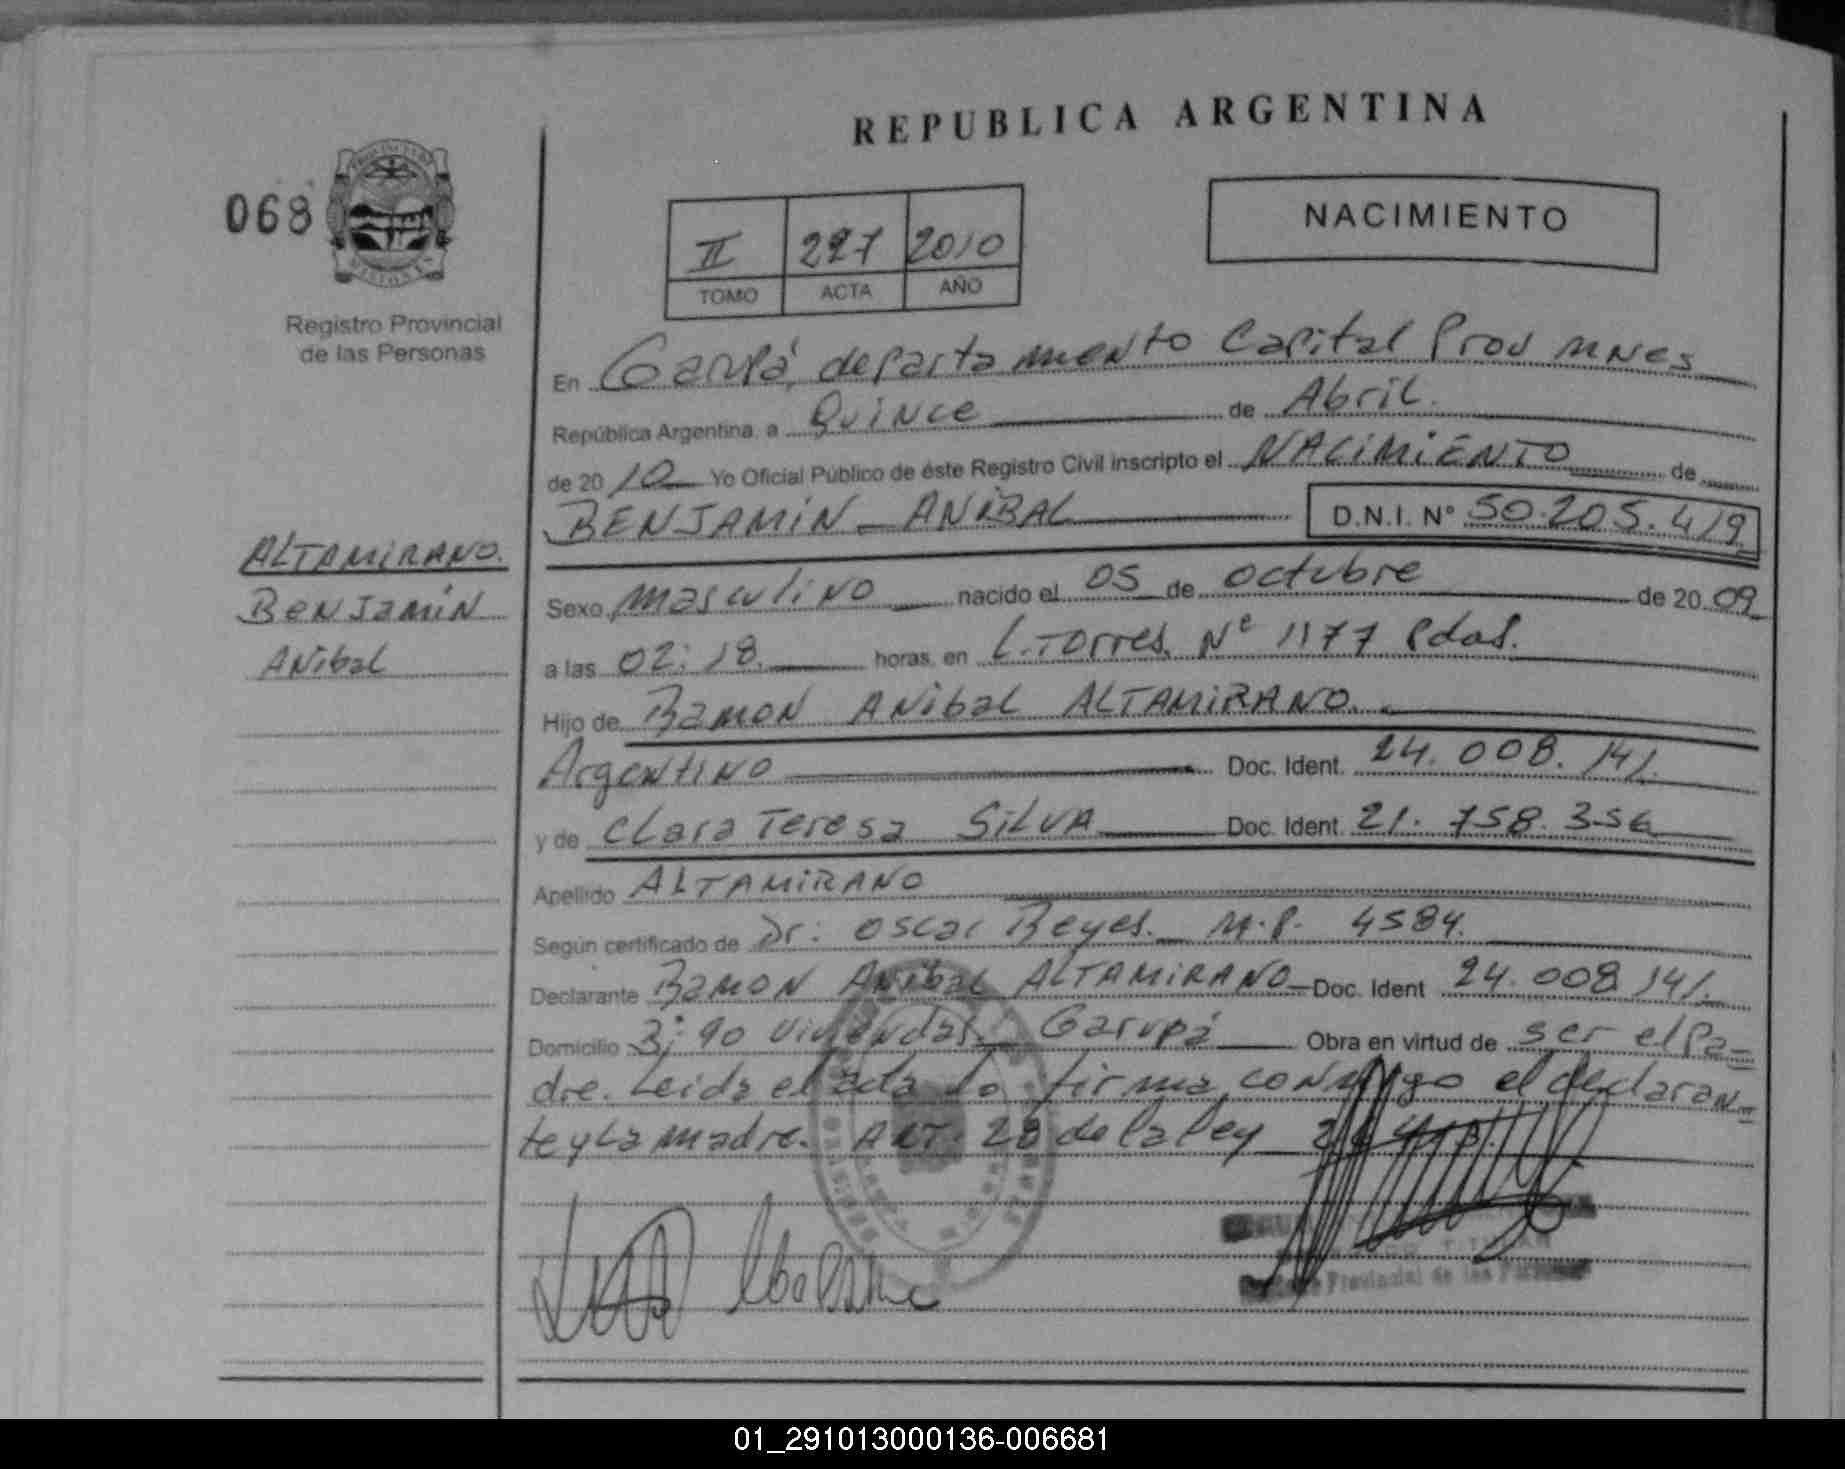 REPUBLICA ARGENTINA
068
NACIMIENTO
II 227 2010
TOMO ACTA AÑO
Registro Provincial
de las Personas
En Garupá, departamento Capital Prov Mnes
República Argentina, a Quince de Abril.
de 2010 Yo Oficial Público de éste Registro Civil inscripto el NACIMIENTO de
BENJAMIN ANIBAL D.N.I. N° 50.205.419
ALTAMIRANO.
Benjamín
Anibal
Sexo masculino nacido el 05 de octubre de 2009
a las 02:18 horas, en L. Torres N° 1177 Pdas.
Hijo de Ramon Anibal ALTAMIRANO.
Argentino Doc. Ident. 24.008.141.
y de Clara Teresa SILVA Doc. Ident. 21.758.356
Apellido ALTAMIRANO
Según certificado de Dr: Oscar Reyes. M.P. 4584.
Declarante Ramon Anibal ALTAMIRANO Doc. Ident 24.008.141.
Domicilio 90 viviendas. Garupá Obra en virtud de ser el Pa-
dre. Leida el acta lo firma conmigo el declaran-
te y La madre. ART. 28 de la ley
Provincial de las
01_291013000136-006681